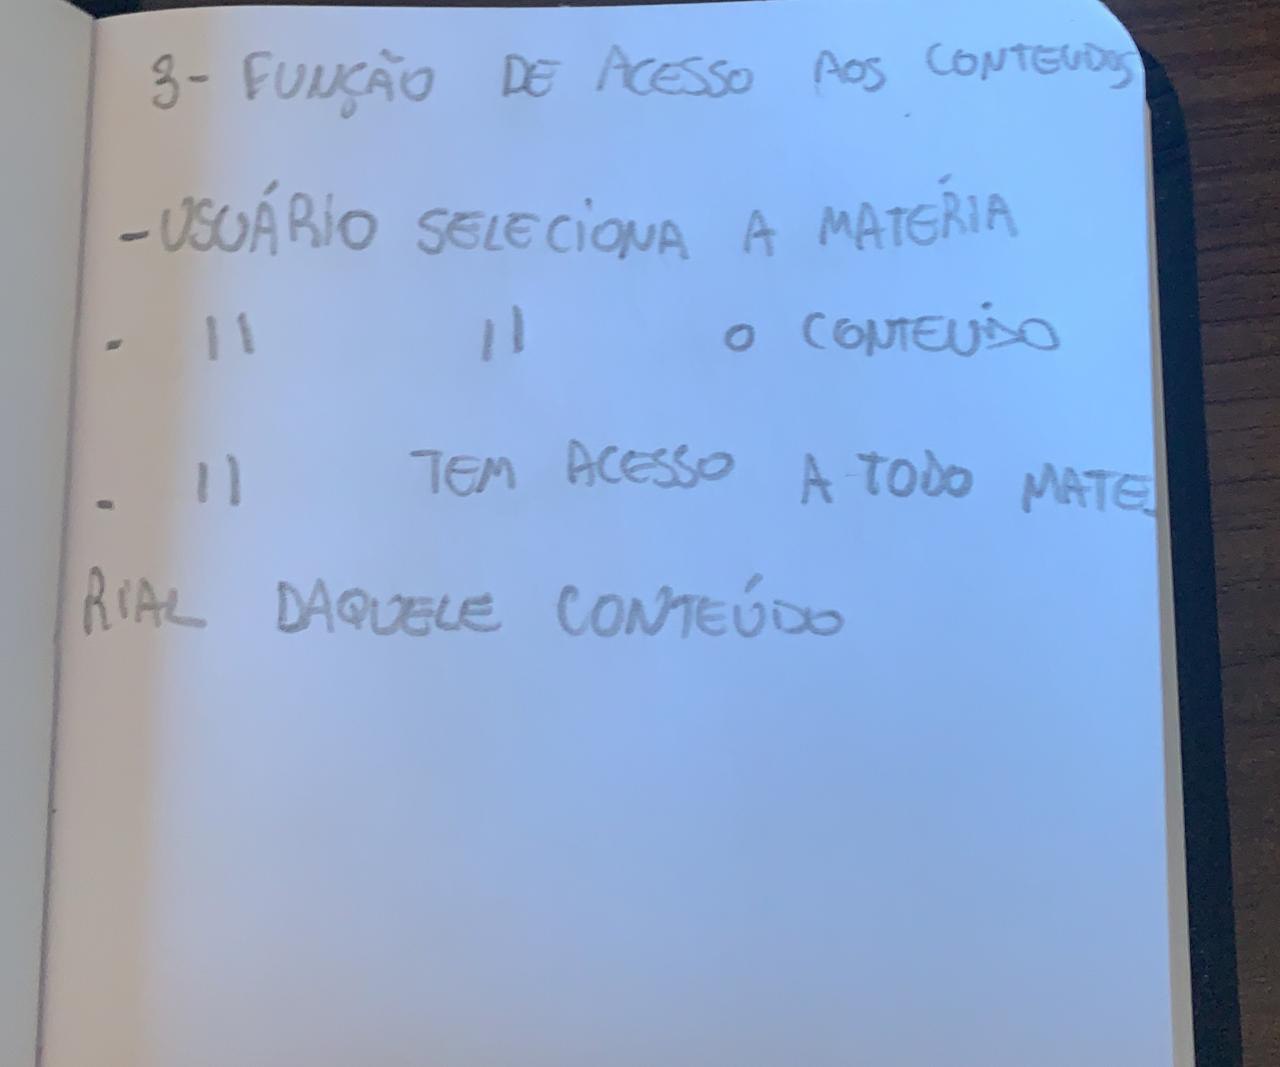 3- FUNÇÃO DE ACESSO AOS CONTEUDOS
- USUÁRIO SELECIONA A MATÉRIA
- 11 11 O CONTEÚDO
- 11 TEM ACESSO A TODO MATE-
RIAL DAQUELE CONTEÚDO